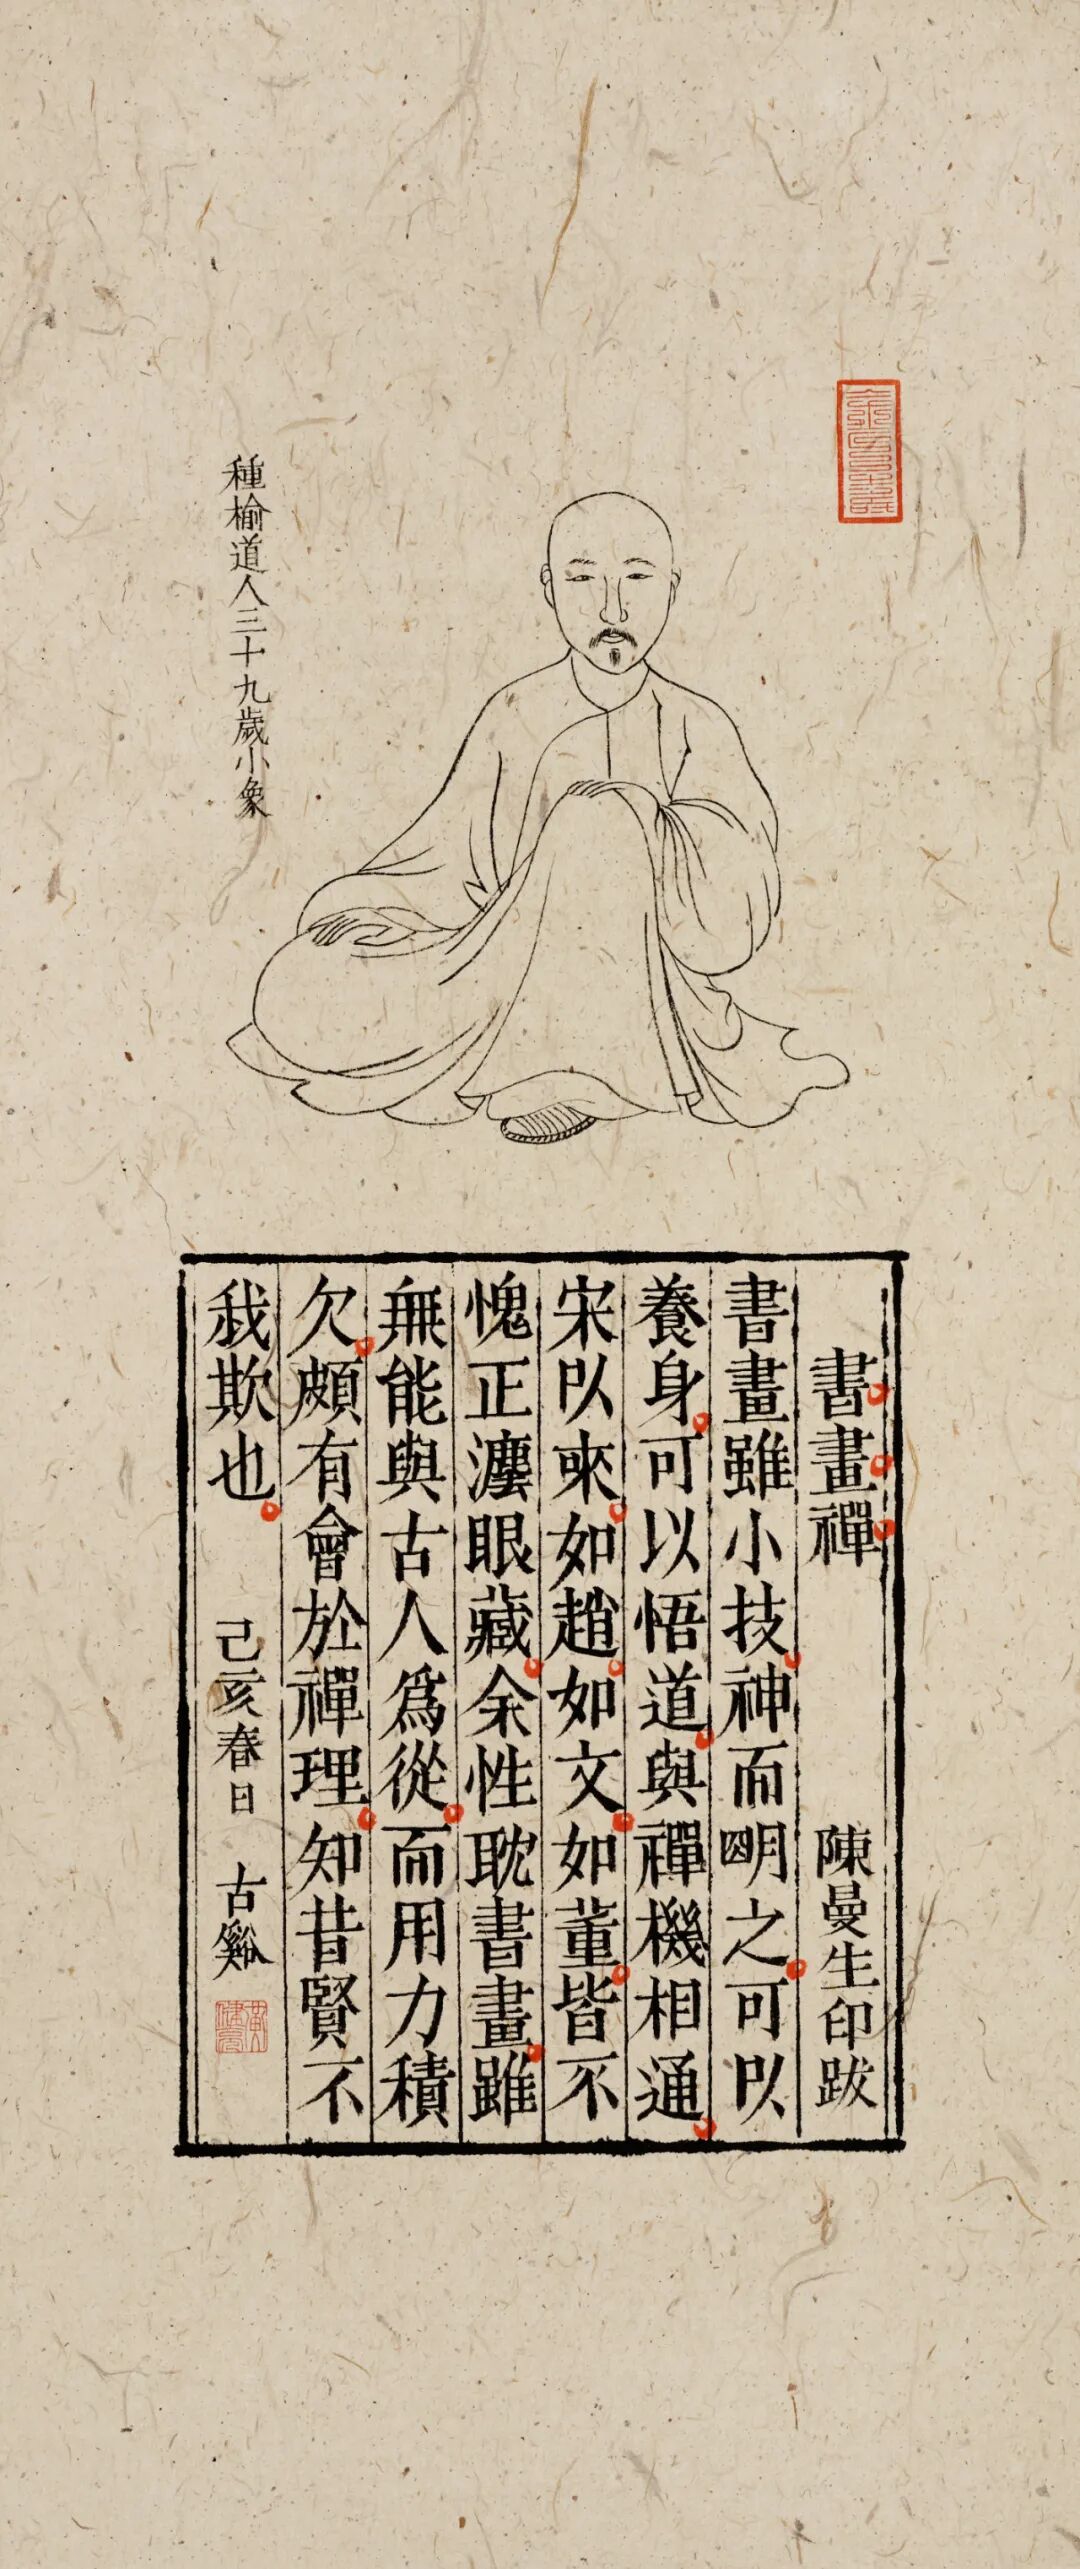 種榆道人三十九歲小象
書畫禪
陳曼生印跋
書畫雖小技神而明之可以
養身可以悟道與禪機相通
宋以來如趙如文如董皆不
愧正灋眼藏余性耽書畫雖
無能與古人為從而用力積
欠頗有會於禪理知昔賢不
我欺也
己亥春日
古谿